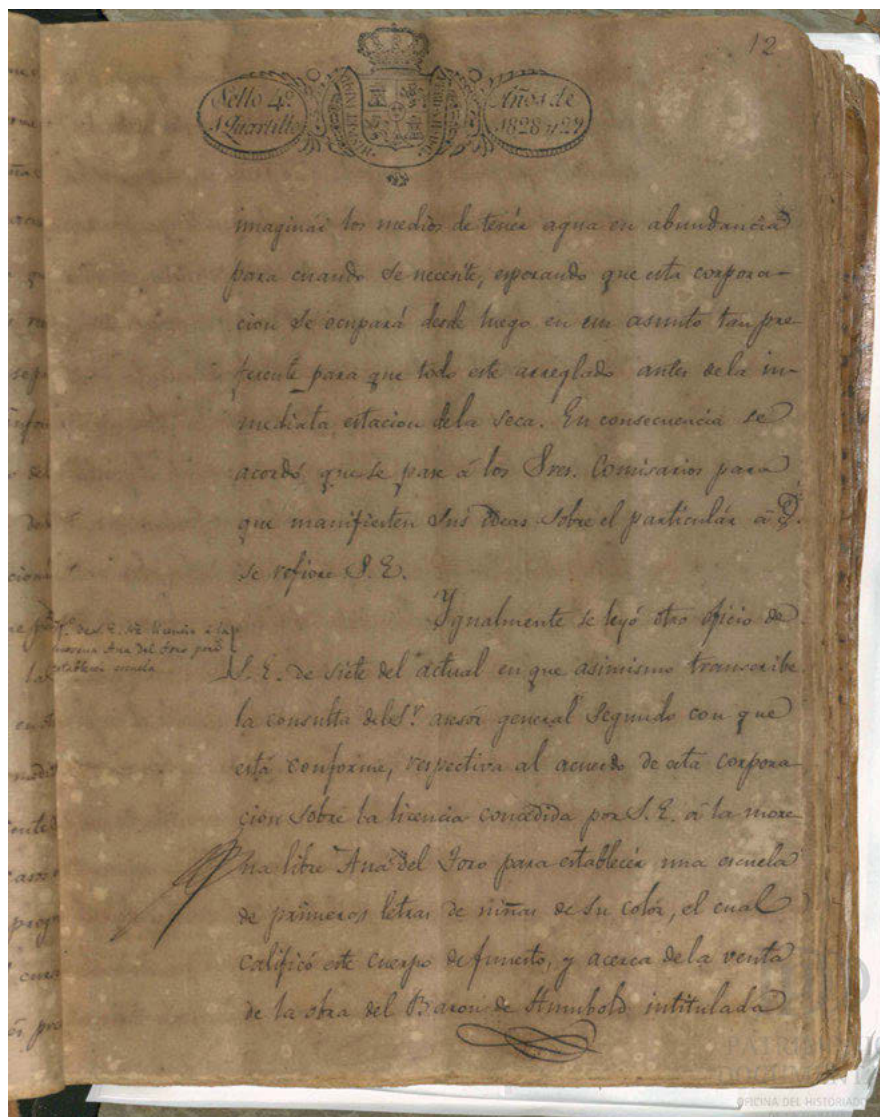 12
Sello 4º.
1 Quartillo
Años de
1828 y 29
imaginár los medios de tenér agua en abundancia
para cuando se necesite, esperando que esta corpora-
cion se ocupará desde luego en un asunto tan pre
ferente para que todo esté arreglado antes dela in-
mediata estacion dela seca. En consecuencia se
acordó que se pase á los Sres. Comisarios para
que manifiesten sus ideas sobre el particulár á q.
se refiere S. E.
Ygualmente se leyó otro oficio de
of.º de S. E. sre licencia á la
morena Ana del Toro para
establecer escuela
S. E. de siete del actual en que asimismo transcribe
la consulta del Sr. asesór general segundo con que
está conforme, respectiva al acuerdo de esta corpora-
ción sobre la licencia concedida por S. E. á la more
na libre Ana del Toro para establecér una escuela
de primeras letras de niñas de su colór, el cual
calificó este cuerpo de funesto, y acerca dela venta
de la obra del Baron de Humbold intitulada
PATRIMONIO
DOCUMENTAL
OFICINA DEL HISTORIADOR